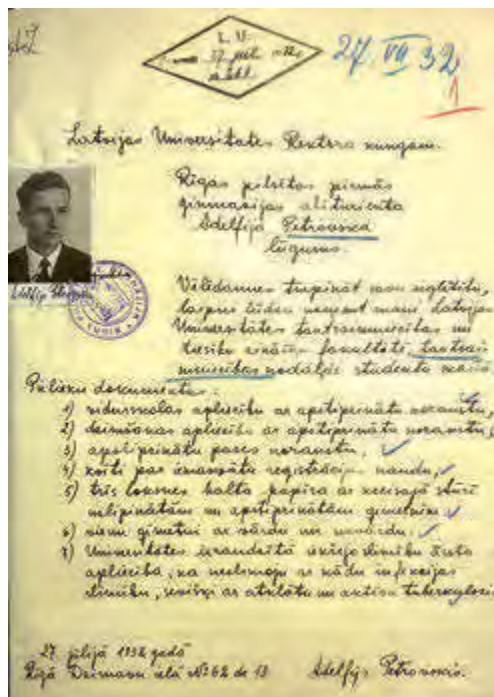 L. U.
27 VII 32
1
Latvijas Universitates Rektora kungam.
Rīgas pilsētas pirmās
ģimnazijas abiturienta
Adelfija Petrovska
lūgums.
Vēlēdamies turpināt savu izglītību,
laipni lūdzu uzņemt mani Latvijas
Universitātes tautsaimniecības un
tiesību zinātņu fakultātē, tautsai-
mniecības nodaļas studentu
Pielieku dokumentus:
1) vidusskolas apliecību ar apstiprinātu norakstu,
2) dzimšanas apliecību ar apstiprinātu norakstu,
3) apstiprinātu pases norakstu,
4) kvīti par iemaksātu registrācijas naudu,
5) trīs loksnes balta papīra ar
uzlīpinātām un apstiprinātām ģimetnēm
6) vienu ģimetni ar vārdu un uzvārdu.
7) Universitātes iekšķīgo slimību ārsta
apliecība, ka neslimoju ar kādu infekcijas
slimību, sevišķi ar atklātu un aktīvu tuberkulozi
27. jūlijā 1932 gadā
Rīgā Dzirnavu ielā № 62 dz 13 Adelfijs Petrovskis.